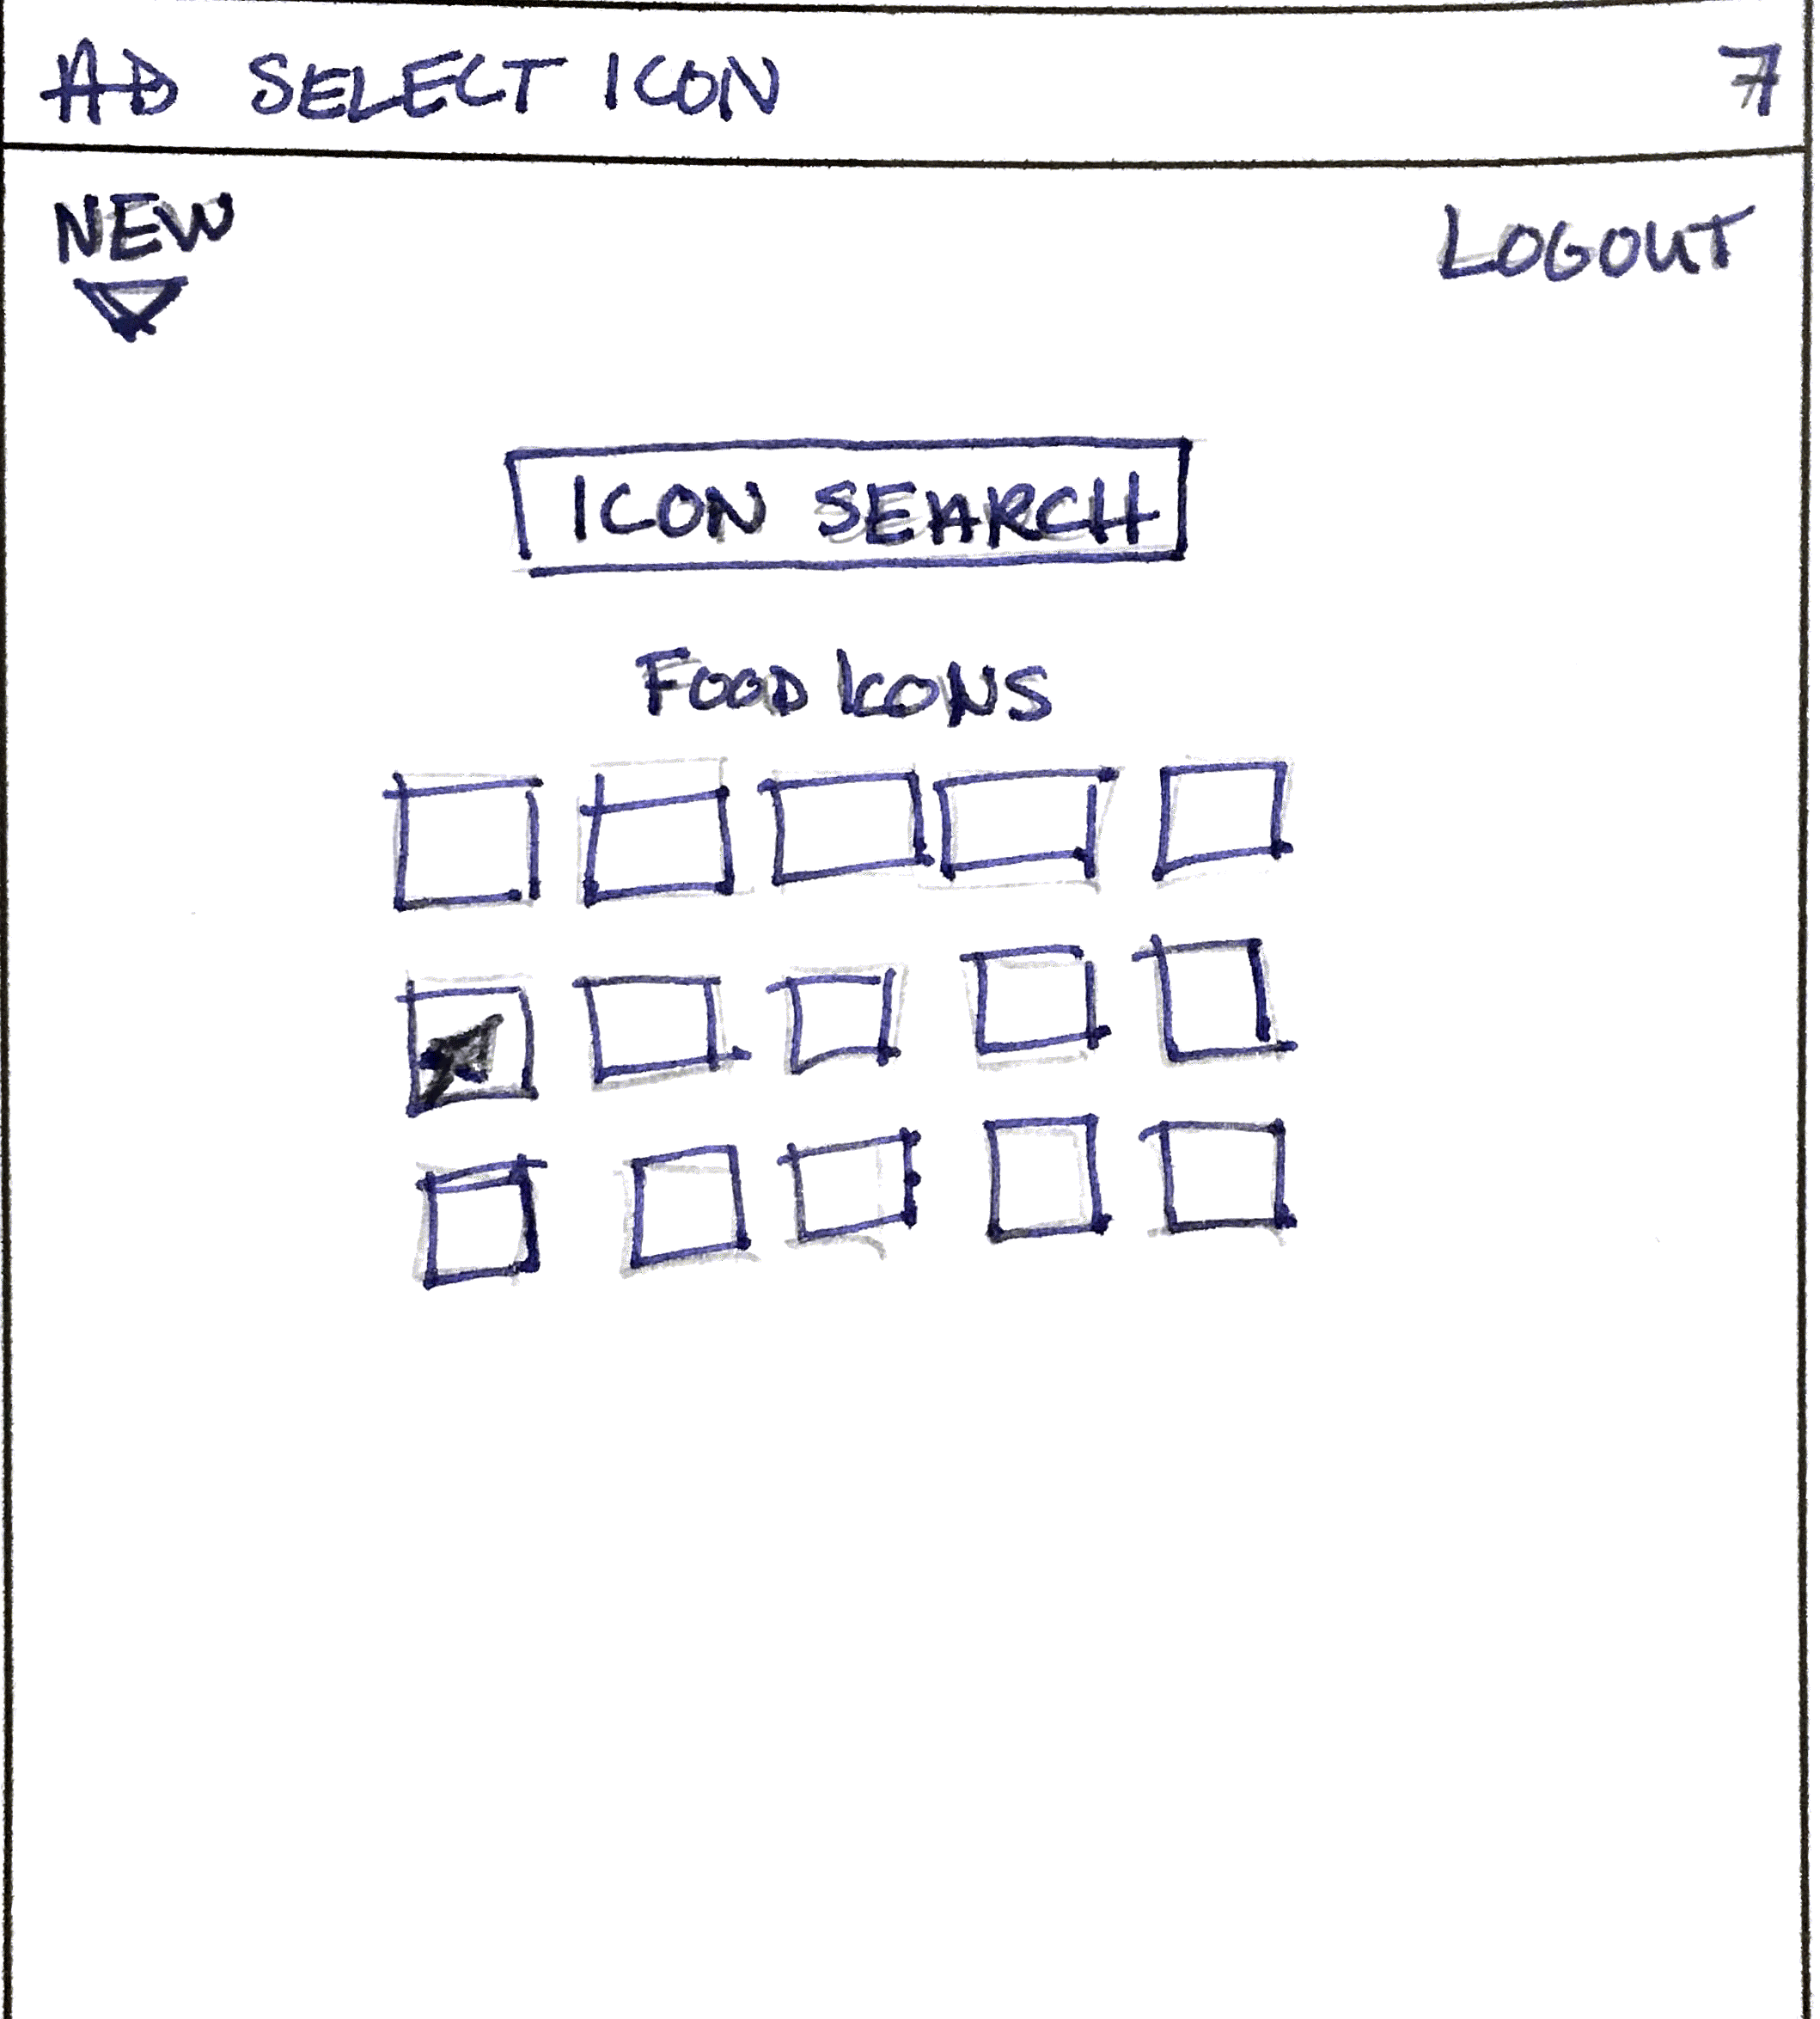 AD SELECT ICON 7
NEW LOGOUT
ICON SEARCH
FOOD ICONS